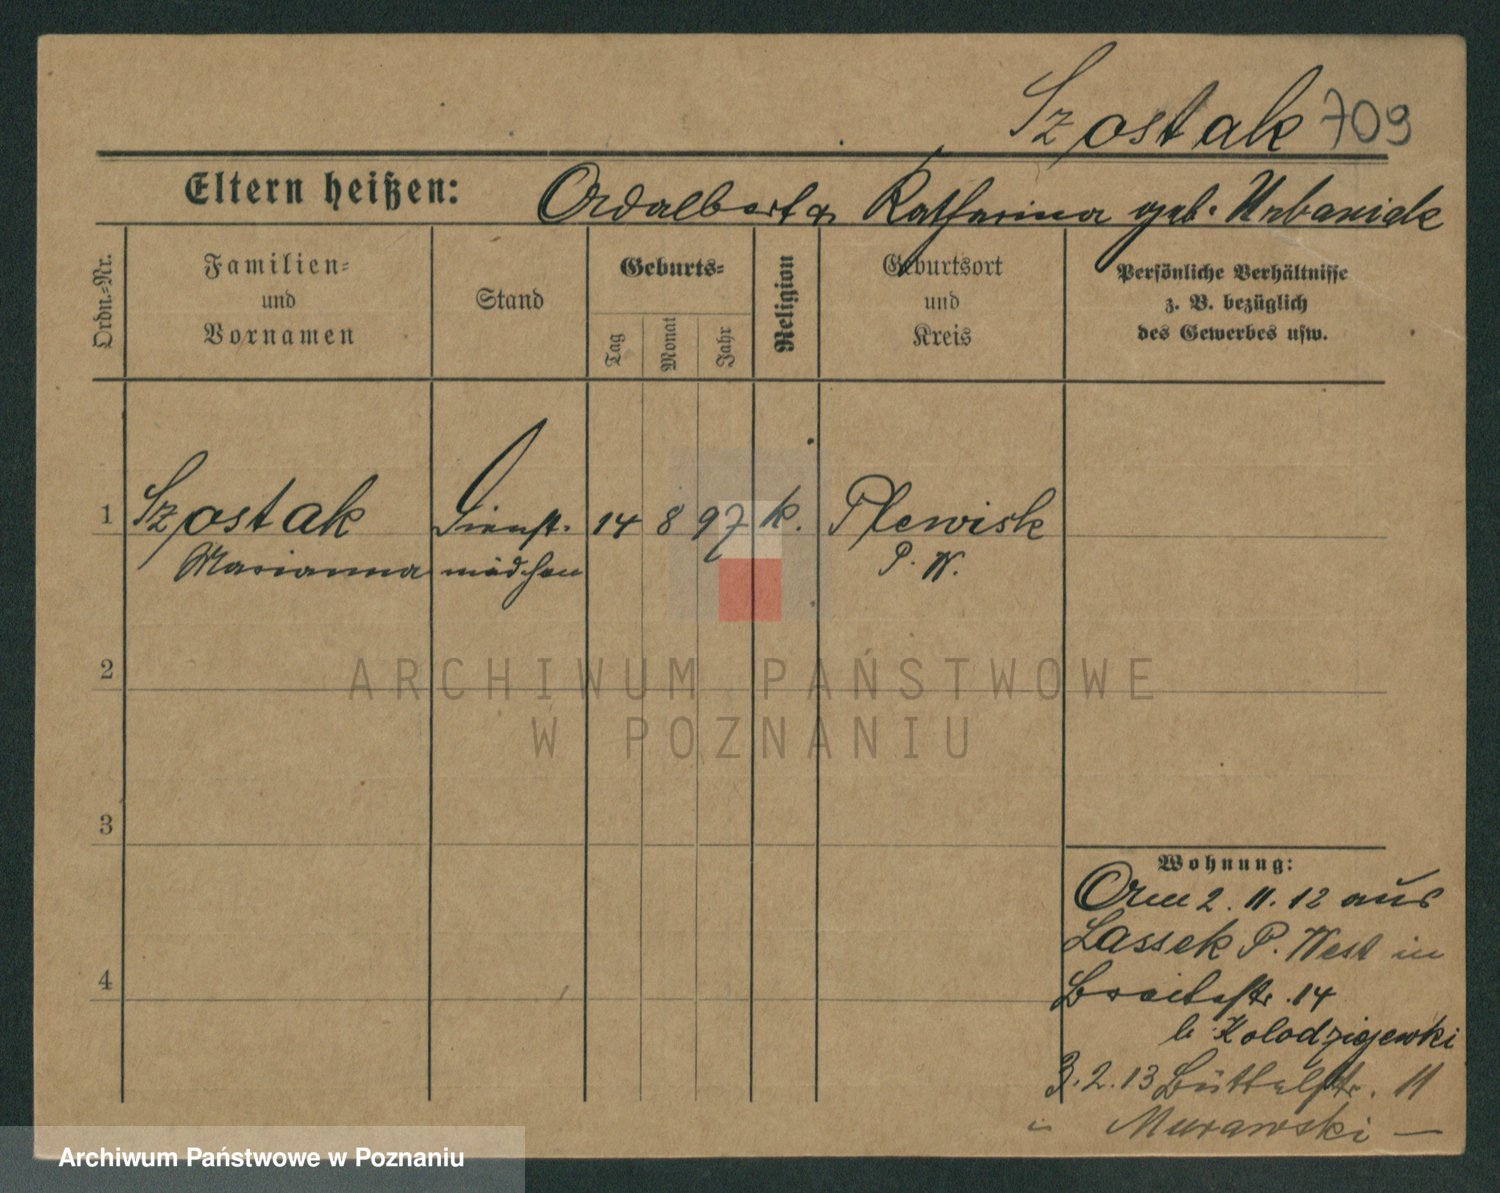 Szostak 709
Eltern heißen: Adalbert u. Katharina geb. Urbaniak
Ordn.-Nr.
Familien-
und
Vornamen
Stand
Geburts-
Tag
Monat
Jahr
Religion
Geburtsort
und
Kreis
Persönliche Verhältnisse
z. B. bezüglich
des Gewerbes usw.
1 Szostak Dienst- 14 8 97 k. Plewisk
Marianna mädchen P. W.
2
ARCHIWUM PAŃSTWOWE
W POZNANIU
3
Wohnung:
Am 2. 11. 12 aus
Lassek P. West in
4
Breitestr. 14
b. Kolodziejewski
3. 2. 13 Büttelstr. 11
Murawski —
Archiwum Państwowe w Poznaniu